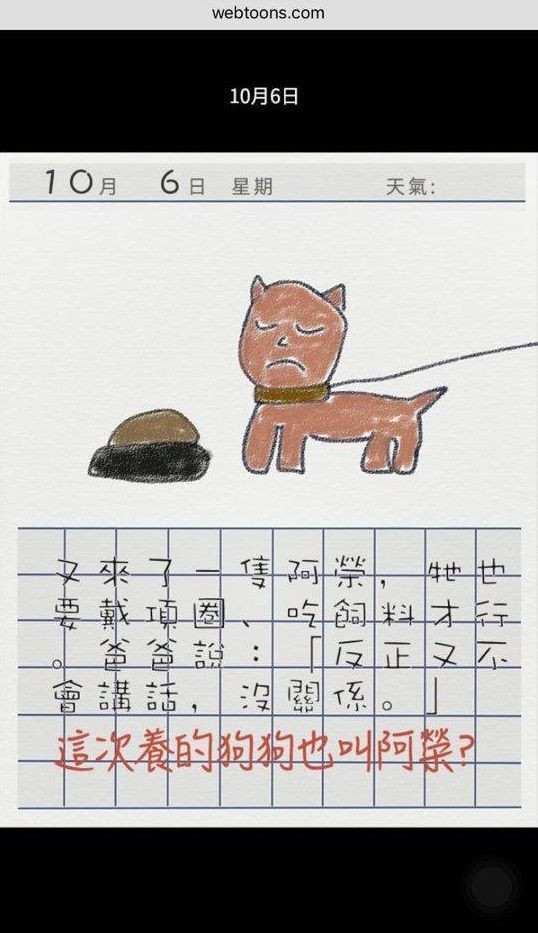 webtoons.com
10月6日
10月 6日 星期 天氣:
又來了一隻阿榮，牠也
要戴項圈、吃飼料才行
。爸爸說：「反正又不
會講話，沒關係。」
這次養的狗狗也叫阿榮?